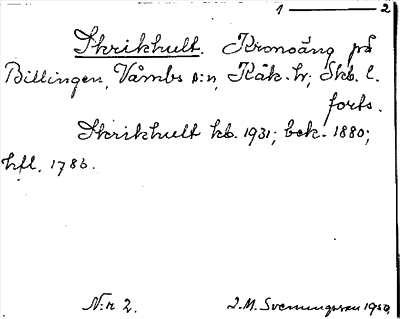 1 — 2
Skrikhult. Kronoäng på
Billingen, Våmbs s:n, Kåk. hr; Skb. l.
forts.
Skrikhult kb. 1931; bek. 1880;
hfl. 1786.
N:r 2. J.M. Svenungsson 1950